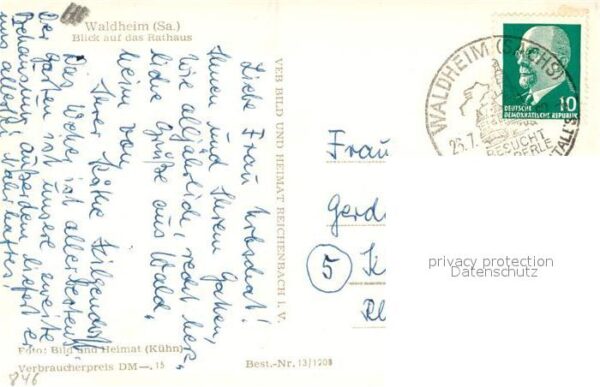 Waldheim (Sa.)
Blick auf das Rathaus
Liebe Frau
Ihnen und Ihrem Gatten,
wie alljährlich, recht herz-
liche Grüße aus Wald-
heim von
Ihrer Käthe
Das Wetter ist allerbestens!
Der Garten ist unsere zweite
Behausung, außerdem liefert er
uns allerlei Nahrhaftes!
VEB BILD UND HEIMAT REICHENBACH I. V.
Foto: Bild und Heimat (Kühn)
Verbraucherpreis DM —.15
Best.-Nr. 13/1208
846
WALDHEIM (SACHS)
23.7.
BESUCHT
PERLE
TALS
DEUTSCHE
DEMOKRATISCHE REPUBLIK
10
Frau
Gerd
5
K
privacy protection
Datenschutz